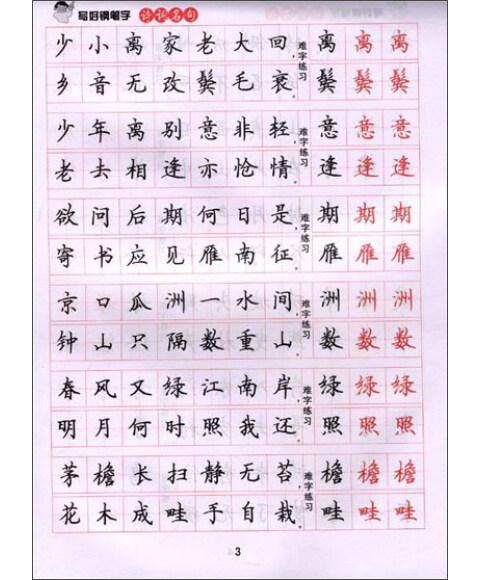 写好钢笔字 诗词名句
少小离家老大回,
乡音无改鬓毛衰。
难字练习
离离离
鬓鬓鬓
少年离别意非轻,
老去相逢亦怆情。
难字练习
意意意
逢逢逢
欲问后期何日是,
寄书应见雁南征。
难字练习
期期期
雁雁雁
京口瓜洲一水间,
钟山只隔数重山。
难字练习
洲洲洲
数数数
春风又绿江南岸,
明月何时照我还。
难字练习
绿绿绿
照照照
茅檐长扫静无苔,
花木成畦手自栽。
难字练习
檐檐檐
畦畦畦
3